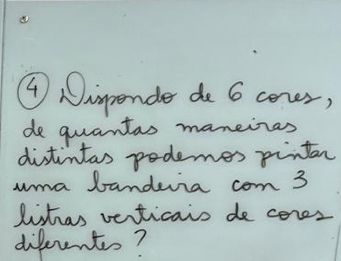 4 Dispondo de 6 cores,
de quantas maneiras
distintas podemos pintar
uma bandeira com 3
listras verticais de cores
diferentes?